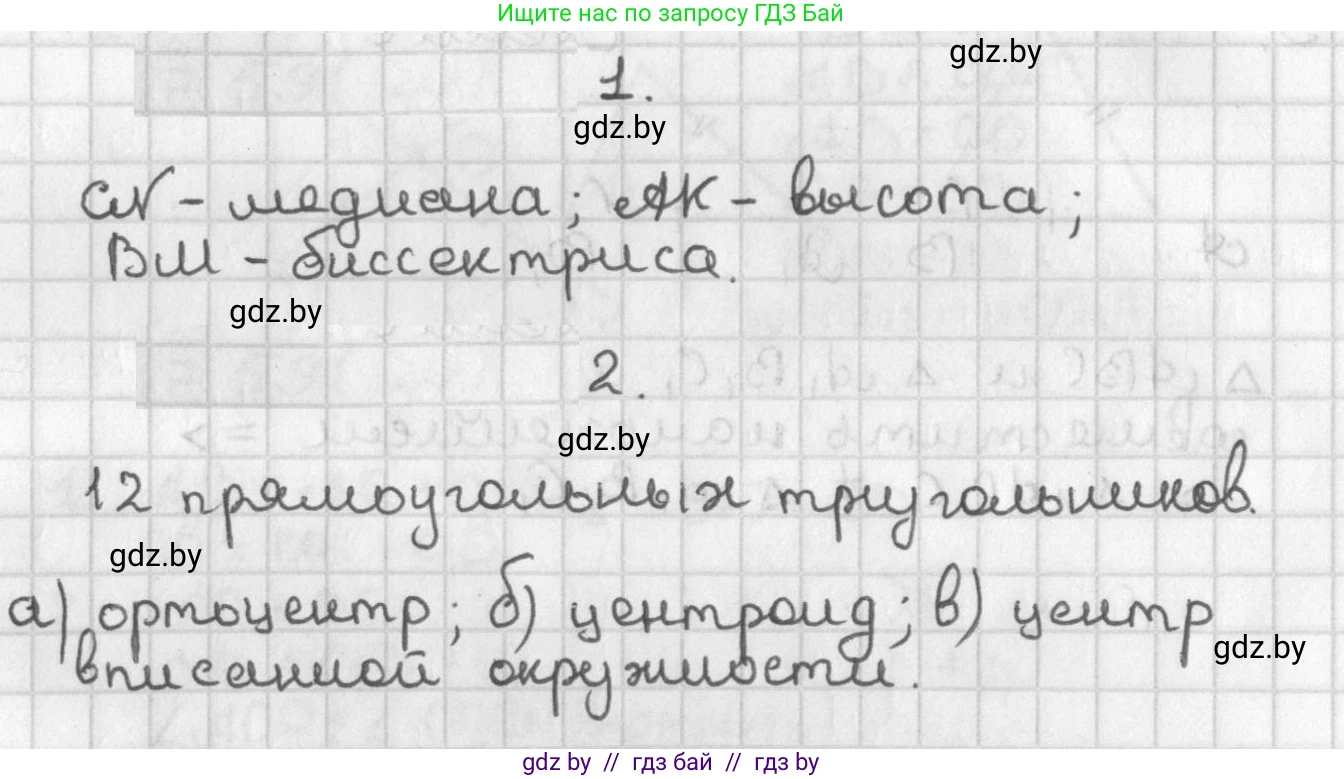 Ищите нас по запросу ГДЗ Бай
gdz.by
1.
gdz.by
CN - медиана; AK - высота;
BM - биссектриса.
gdz.by
2.
gdz.by
12 прямоугольных треугольников.
gdz.by
а) ортоцентр; б) центроид; в) центр
gdz.by
вписанной окружности.
gdz.by // гдз бай // гдз by